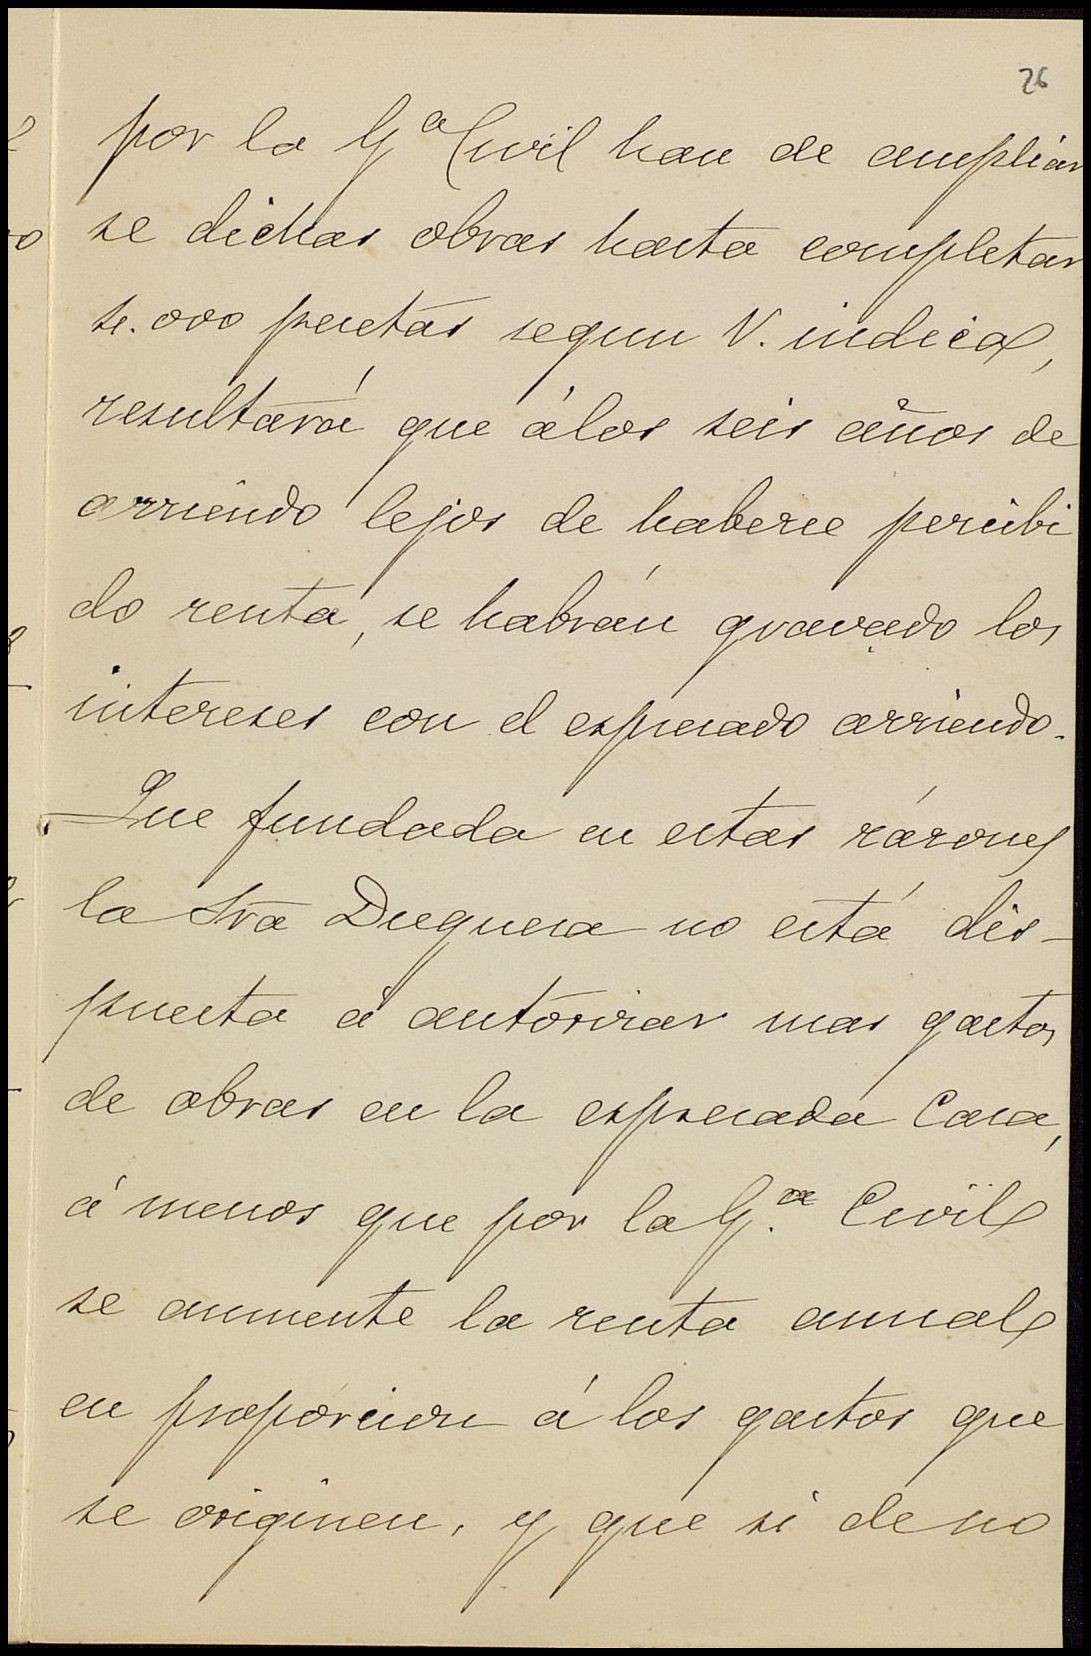 26
por la G.ª Civil han de ampliar
se dichas obras hasta completar
000 pesetas segun V. indica,
resultará que á los seis años de
arriendo lejos de haberse percibi
do renta, se habrán gravado los
intereses con el expresado arriendo.
Que fundada en estas rázones
la Sra Duquesa no está dis-
puesta á autorizar mas gastos
de obras en la expresada Casa,
á menos que por la G.ª Civil
se aumente la renta annal
en proporcion á los gastos que
se originen, y que si de no